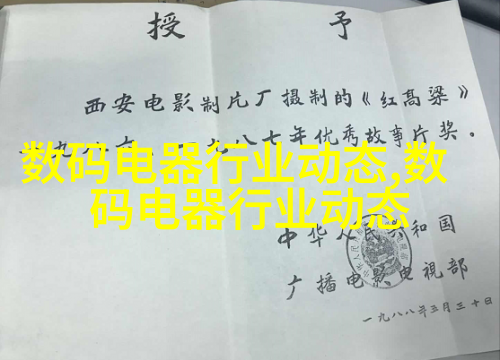 授予
西安电影制片厂摄制的《红高粱》
一九八七年优秀故事片奖。
数码电器行业动态,数
码电器行业动态
中华人民共和国
广播电影电视部
一九八八年三月三十日